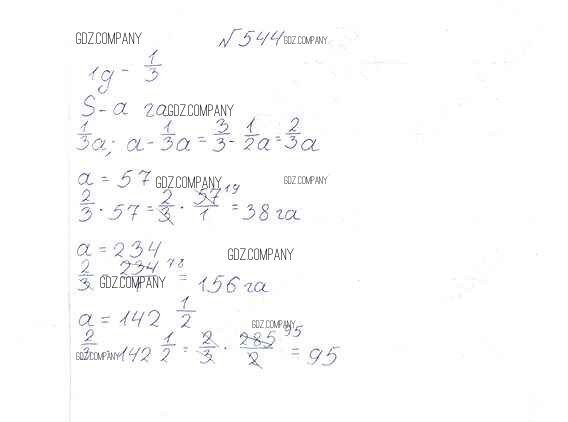 GDZ.COMPANY №544 GDZ.COMPANY
1д - 1/3
S - a га GDZ.COMPANY
1/3a; a - 1/3a = 3/3 - 1/2a = 2/3a
a = 57 GDZ.COMPANY GDZ.COMPANY
2/3 · 57 = 2/3 · 57/1 19 = 38 га
a = 234 GDZ.COMPANY
2/3 234 78 GDZ.COMPANY = 156 га
a = 142 1/2 GDZ.COMPANY
2/3 GDZ.COMPANY 142 1/2 = 2/3 · 285/2 95 = 95